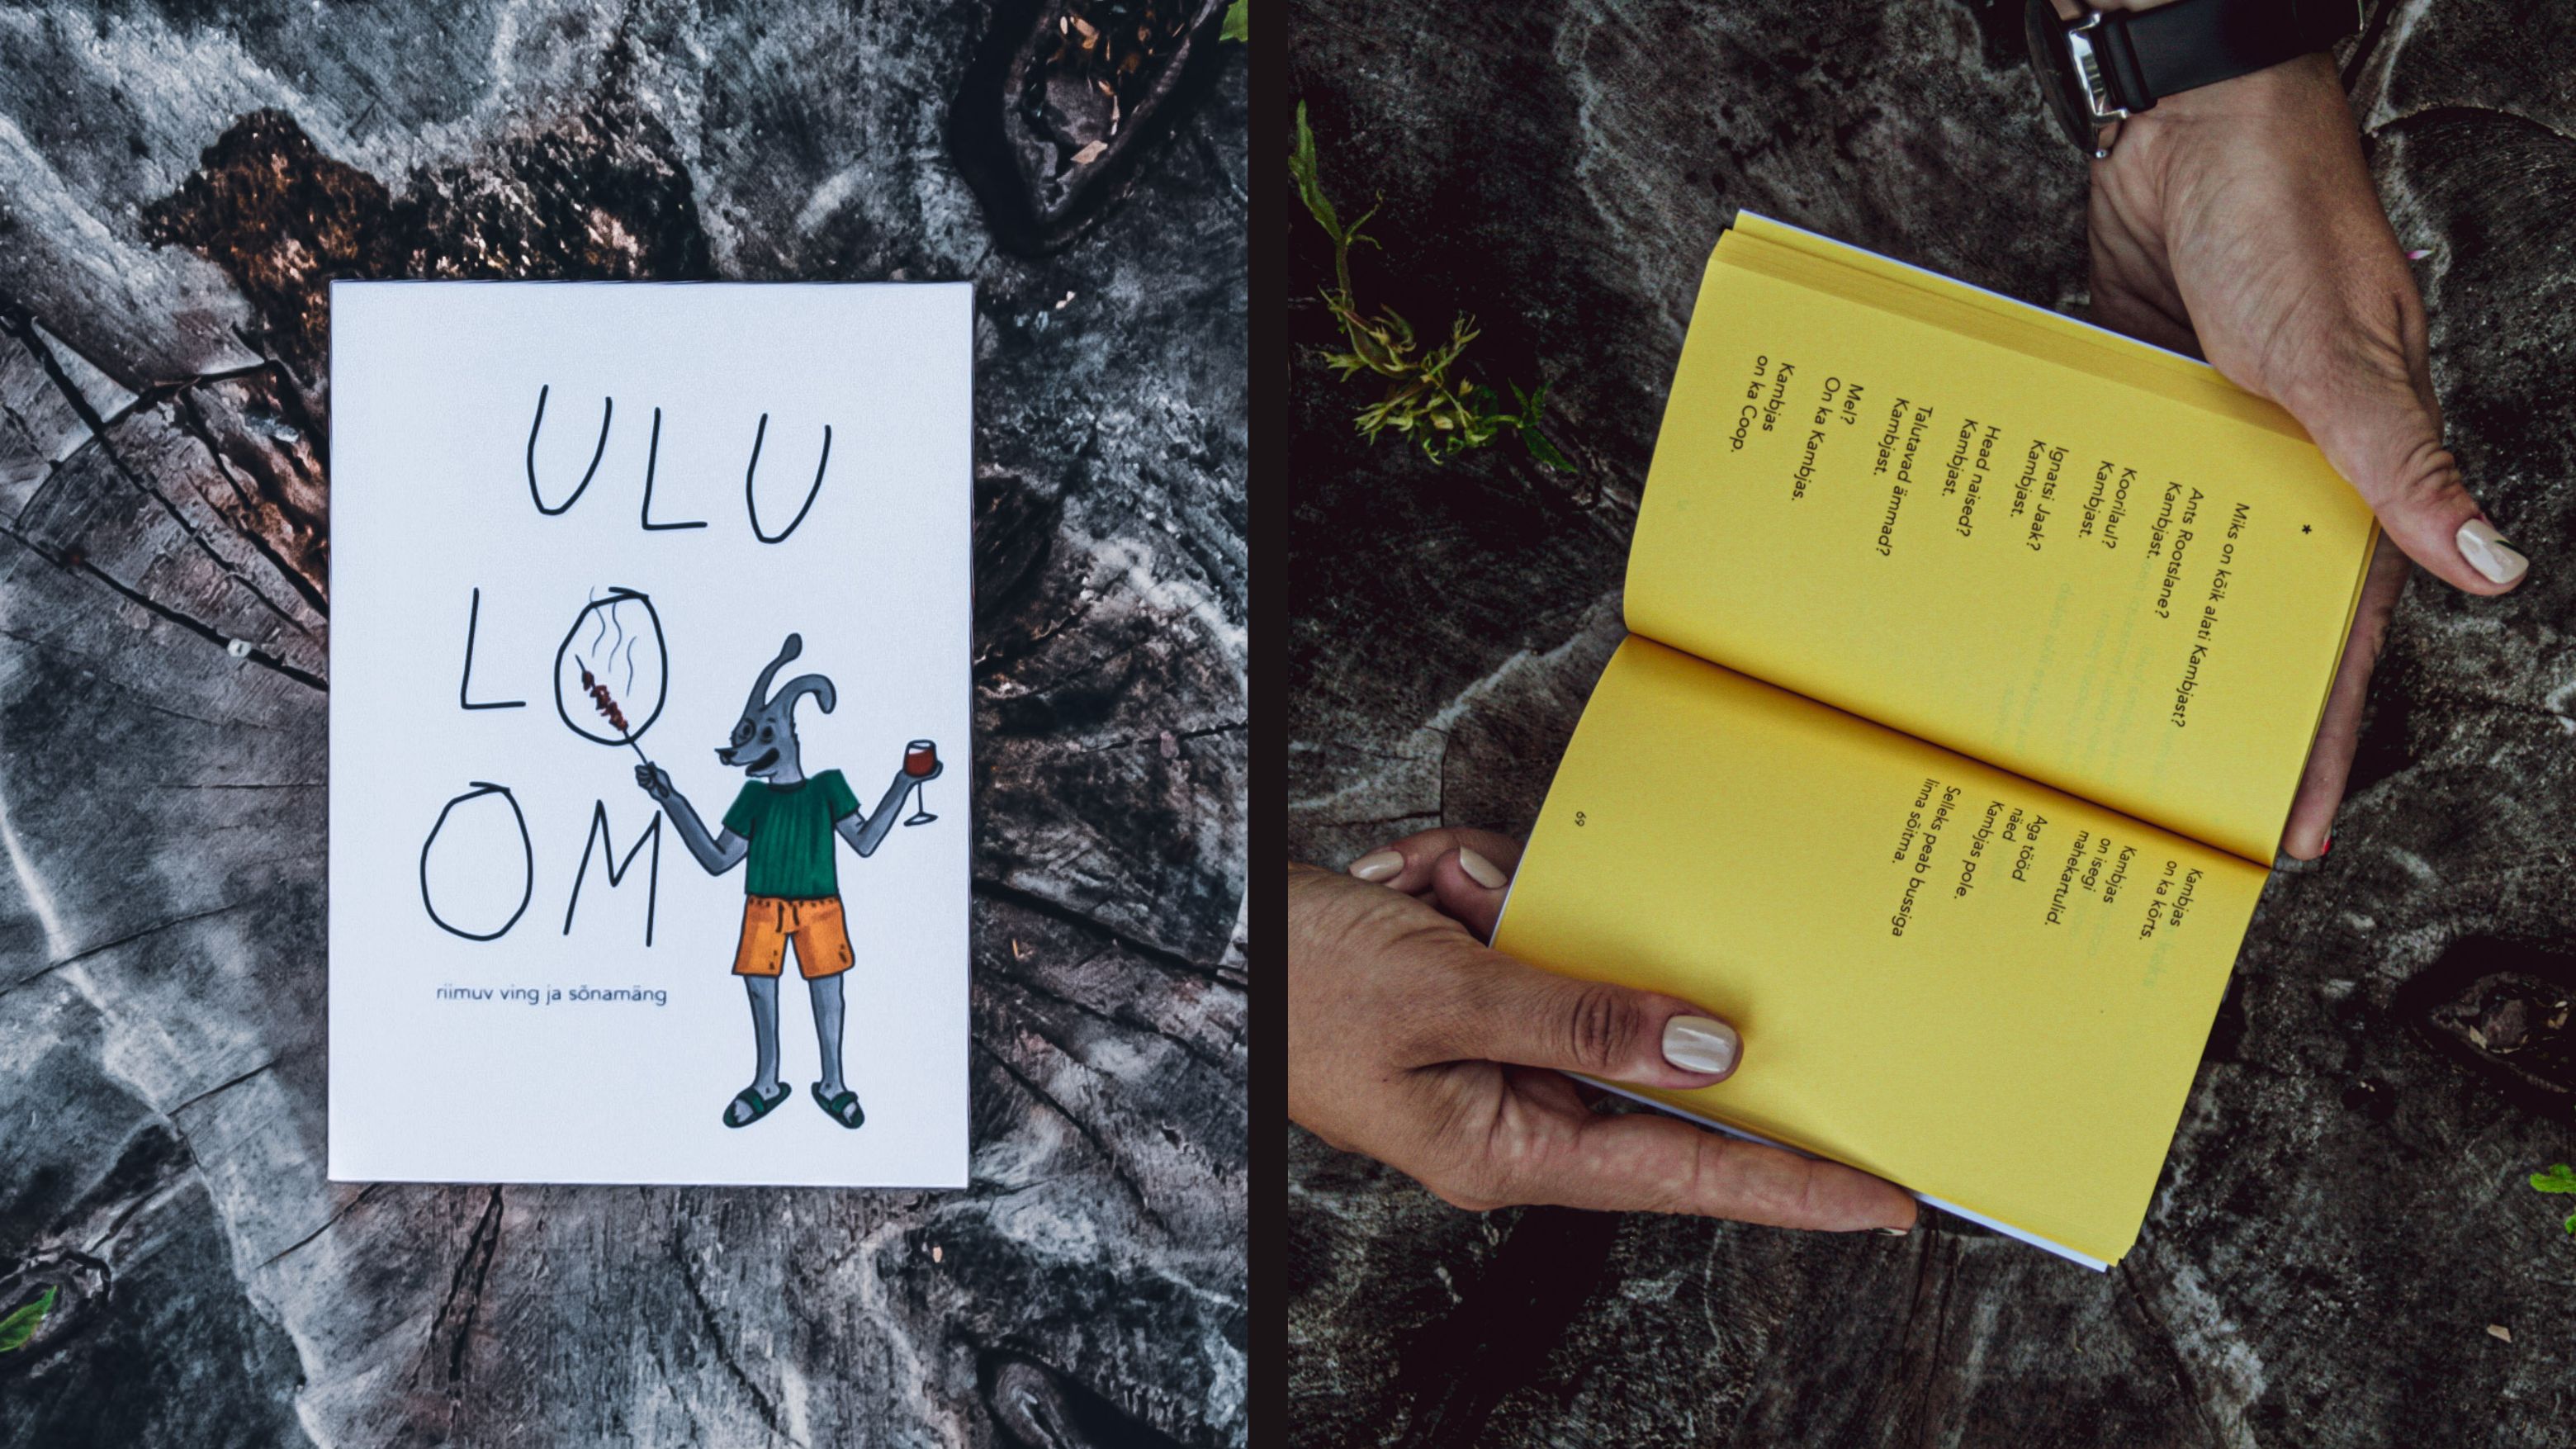 ULU
LO
OM
riimuv ving ja sõnamäng
*
Miks on kõik alati Kambjast?
Ants Rootslane?
Kambjast.
Koorilaul?
Kambjast.
Ignatsi Jaak?
Kambjast.
Head naised?
Kambjast.
Talutavad ämmad?
Kambjast.
Mel?
On ka Kambjas.
Kambjas
on ka Coop.
Kambjas
on ka kõrts.
Kambjas
on isegi
mahekartulid.
Aga tööd
näed
Kambjas pole.
Selleks peab bussiga
linna sõitma.
69